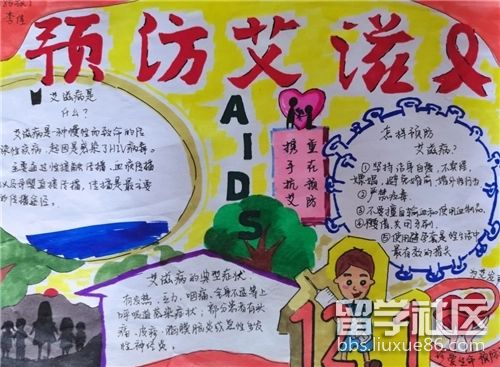 预防艾滋
AIDS
艾滋病是
什么？
艾滋病是一种慢性而致命的传
染性疾病，起因是感染了HIV病毒。
主要通过性接触传播、血液传播
以及母婴直接传播，
艾滋病的典型症状
有发热、乏力、咽痛、全身不适等上
呼吸道感染症状；部分患者有头
痛、皮疹、脑膜脑炎或急性多发
性神经炎。
重在预防
携手抗艾
怎样预防
艾滋病？
①坚持洁身自爱，不卖淫、
嫖娼，避免婚前、婚外性行为
②严禁吸毒
③不要擅自输血和使用血制品。
④
⑤使用避孕套是性生活中
最有效的措施
12
留学社区
bbs.liuxue86.com